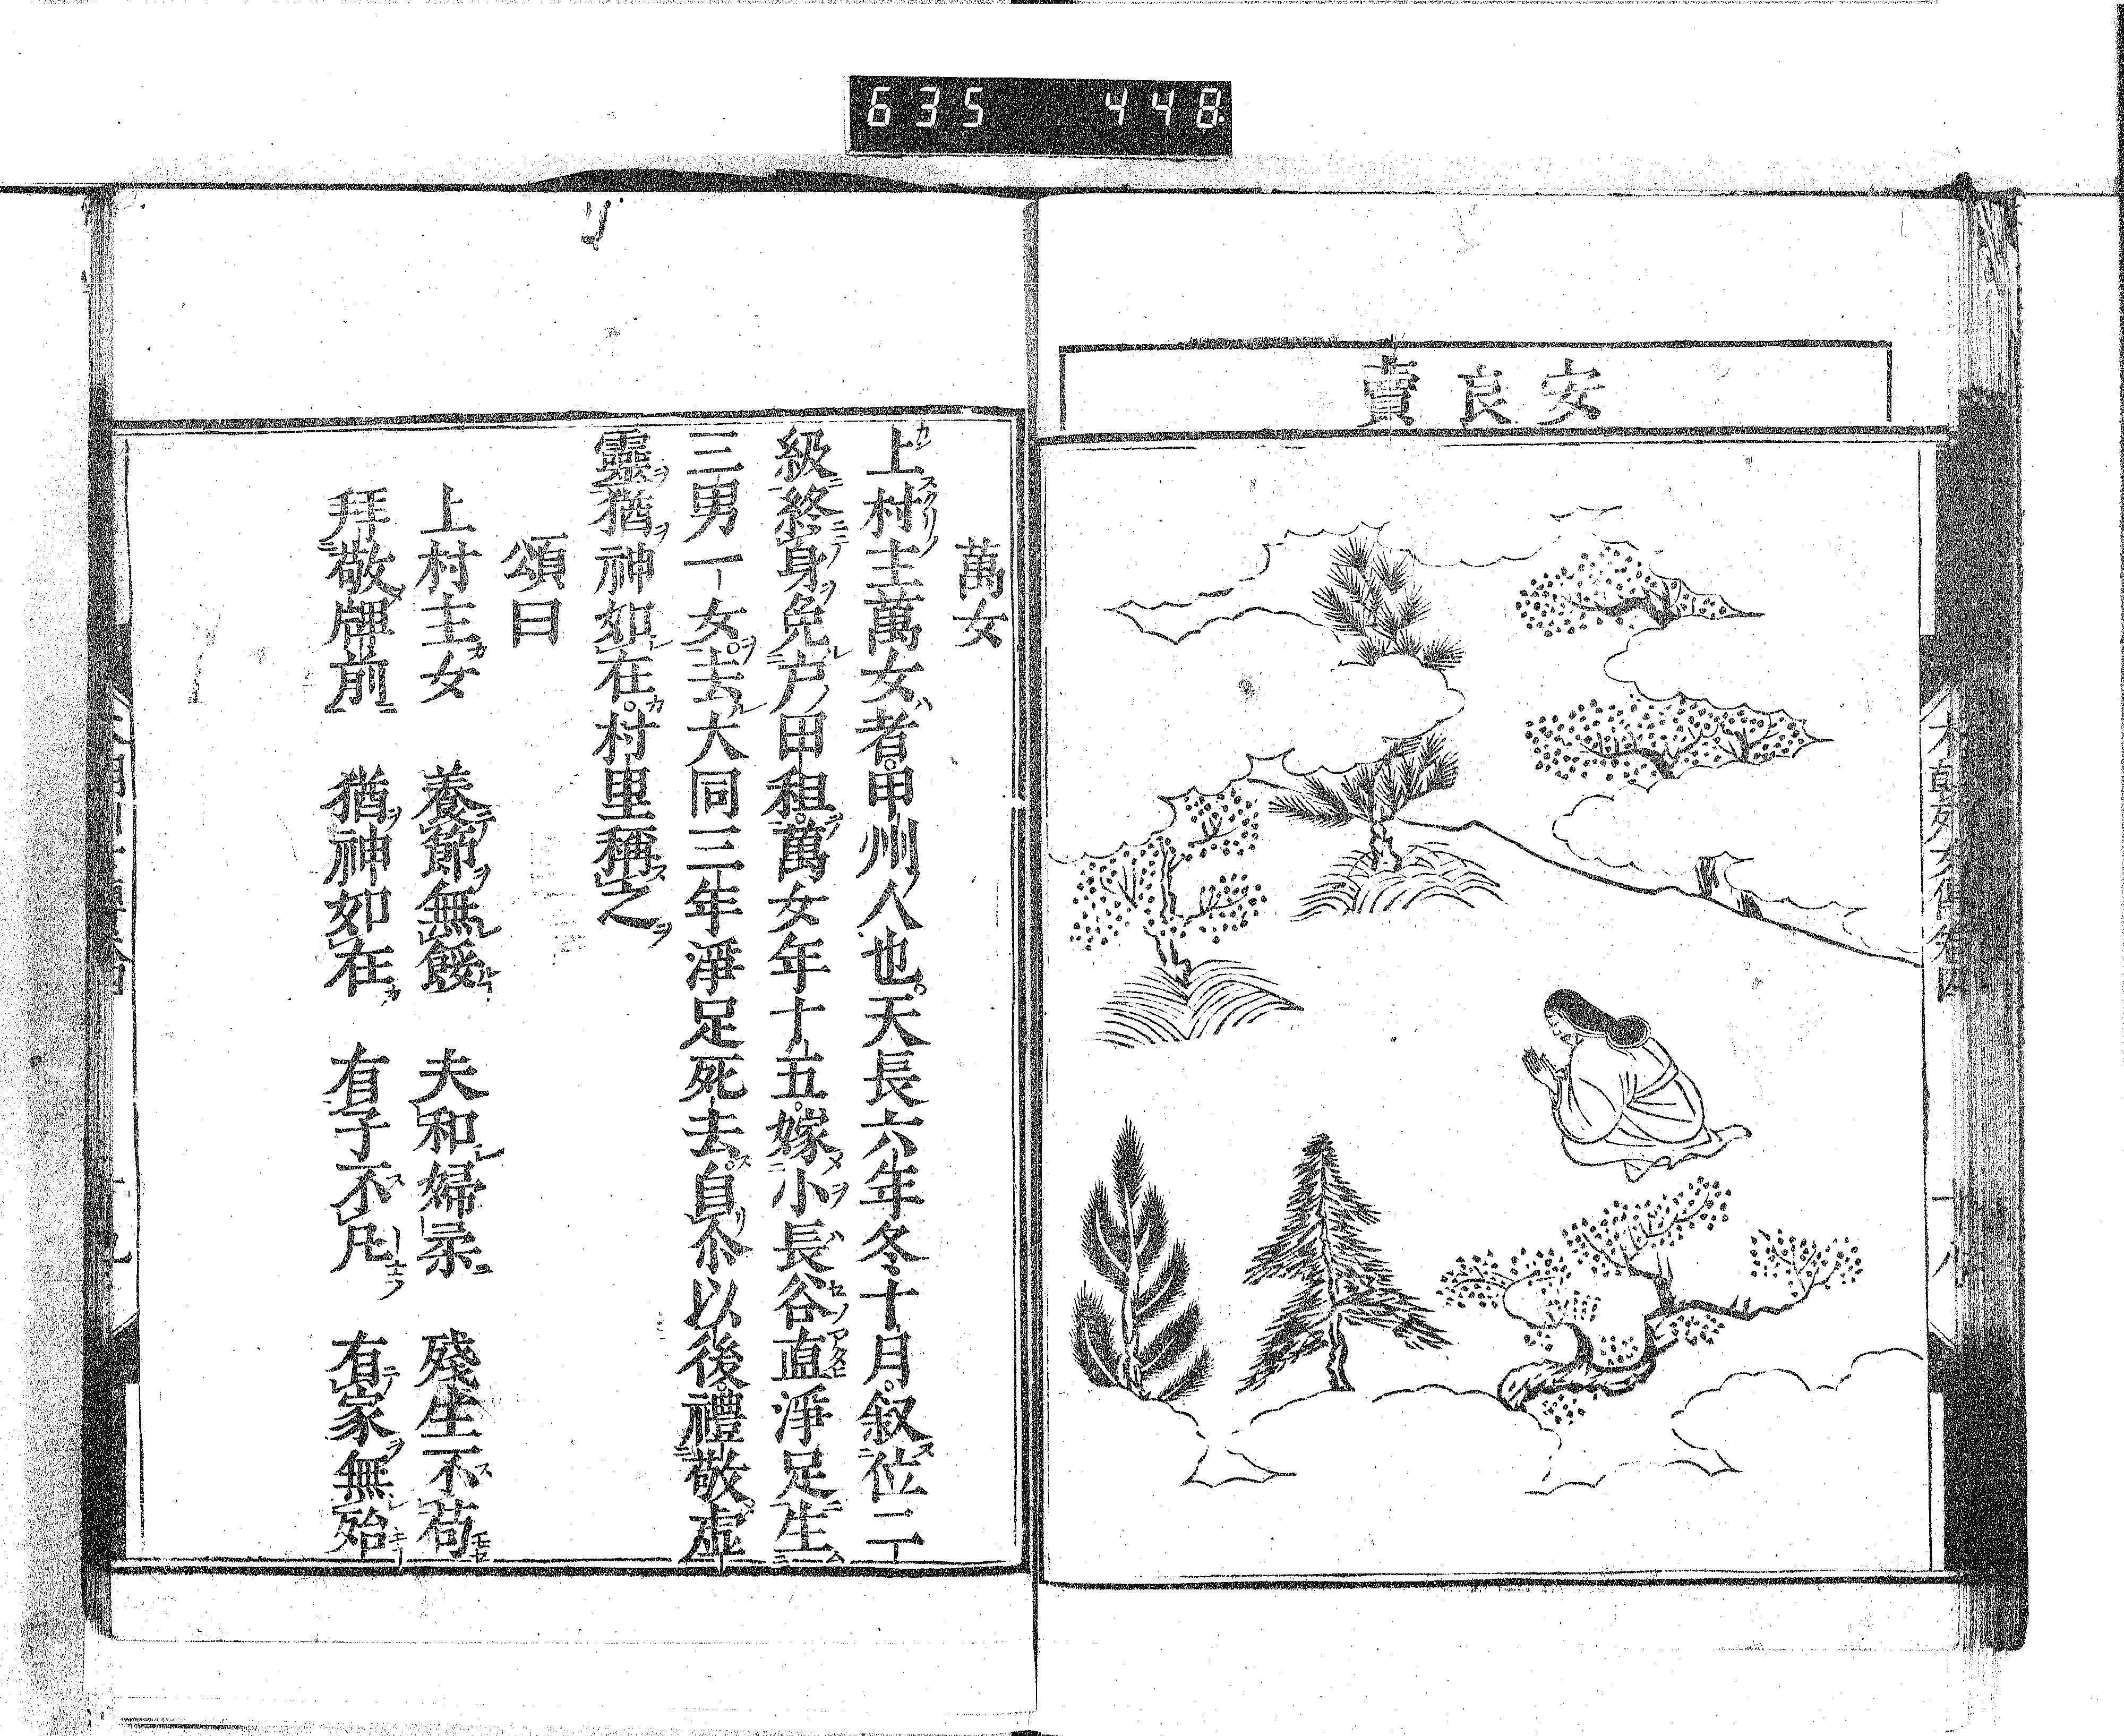 635 448
安良賣
本朝列女傳卷四
萬女
上村主萬女者甲州人也天長六年冬十月叙位二
級終身免戸田租萬女年十五嫁小長谷直淨足生
三男一女去大同三年淨足死去自尒以後禮敬虚
靈猶神如在村里稱之
頌曰
上村主女 養節無餒 夫和婦柔 殘生不苟
拜敬牌前 猶神如在 有子不凡 有家無殆